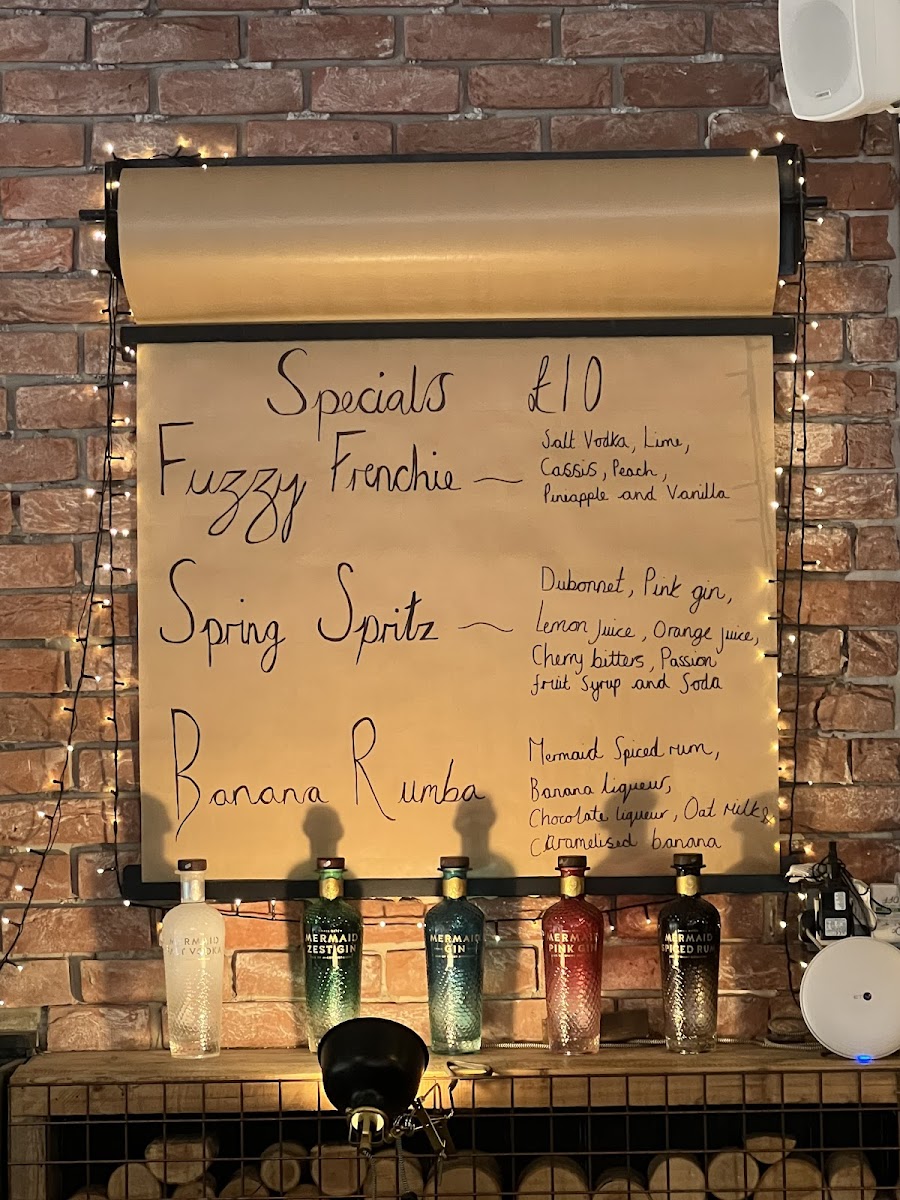 Specials £10
Fuzzy Frenchie — Salt Vodka, Lime,
Cassis, Peach,
Pineapple and Vanilla
Spring Spritz — Dubonnet, Pink gin,
Lemon juice, Orange juice,
Cherry bitters, Passion
fruit Syrup and Soda
Banana Rumba
Mermaid Spiced rum,
Banana liqueur,
Chocolate liqueur, Oat Milk &
Caramelised banana
MERMAID
SALT VODKA
MERMAID
ZEST GIN
MERMAID
GIN
MERMAID
PINK GIN
MERMAID
SPICED RUM